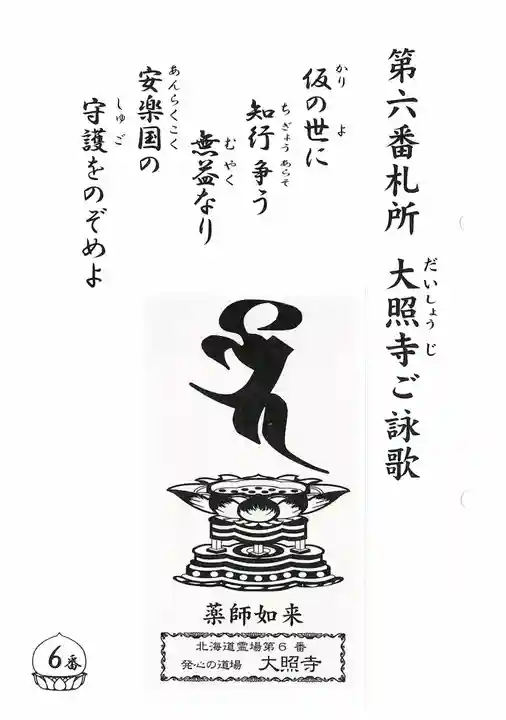 第六番札所 大照寺ご詠歌
だいしょうじ
仮の世に
かり よ
知行争う
ちぎょうあらそ
無益なり
むやく
安楽国の
あんらくこく
守護をのぞめよ
しゅご
薬師如来
北海道霊場第6番
発心の道場 大照寺
6番